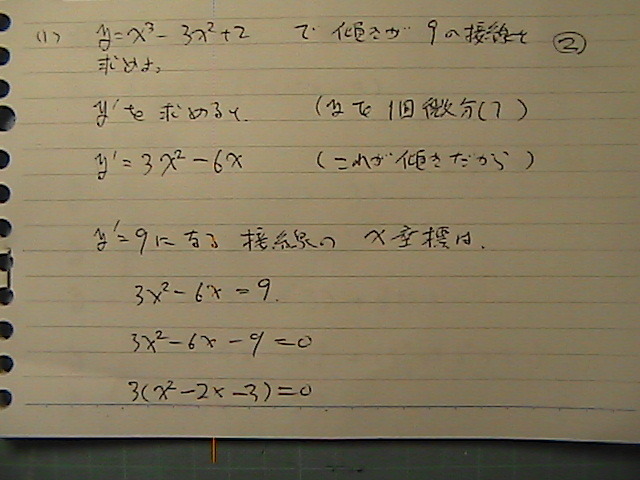 (1) y=x³-3x²+2 で 傾きが 9の接線を ②
求めよ。
y'を求めると、 (yを1回微分して)
y'=3x²-6x (これが傾きだから)
y'=9になる 接線の x座標は、
3x²-6x=9.
3x²-6x-9=0
3(x²-2x-3)=0